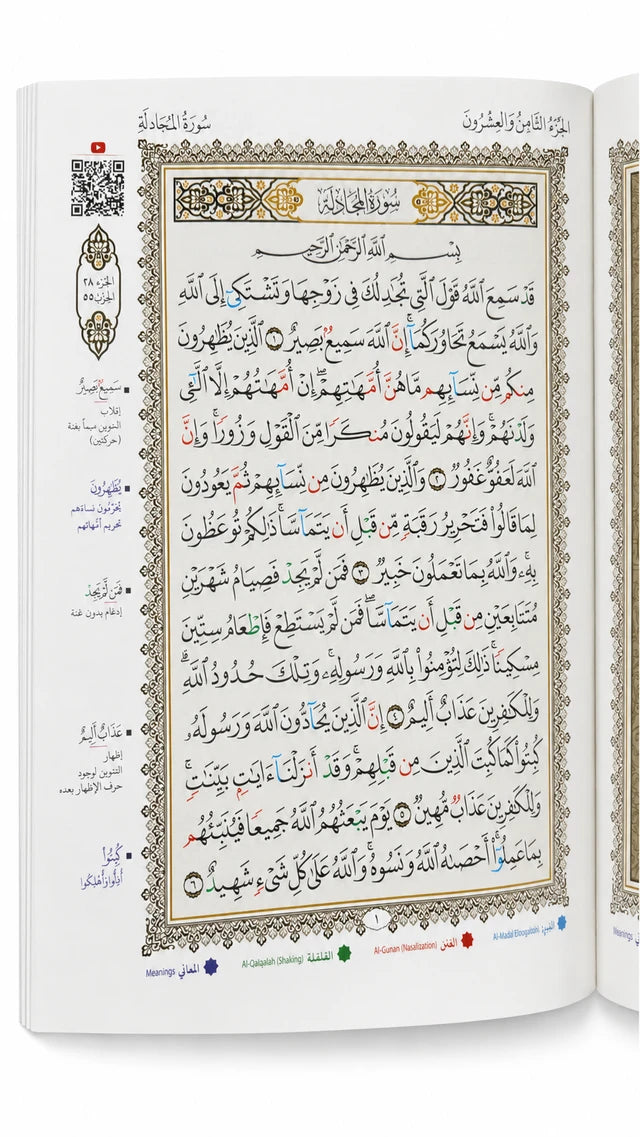 الجُزْءُ الثَّامِنُ وَالْعِشْرُونَ
سُورَةُ المُجَادلَةِ
سُورَةُ المُجَادلَة
بِسْمِ ٱللَّهِ ٱلرَّحْمَٰنِ ٱلرَّحِيمِ
قَدْ سَمِعَ ٱللَّهُ قَوْلَ ٱلَّتِي تُجَٰدِلُكَ فِي زَوْجِهَا وَتَشْتَكِيٓ إِلَى ٱللَّهِ
وَٱللَّهُ يَسْمَعُ تَحَاوُرَكُمَآ ۚ إِنَّ ٱللَّهَ سَمِيعٌۢ بَصِيرٌ ١ ٱلَّذِينَ يُظَٰهِرُونَ
مِنكُم مِّن نِّسَآئِهِم مَّا هُنَّ أُمَّهَٰتِهِمْ ۖ إِنْ أُمَّهَٰتُهُمْ إِلَّا ٱلَّٰٓـِٔي
وَلَدْنَهُمْ ۚ وَإِنَّهُمْ لَيَقُولُونَ مُنكَرًا مِّنَ ٱلْقَوْلِ وَزُورًا ۚ وَإِنَّ
ٱللَّهَ لَعَفُوٌّ غَفُورٌ ٢ وَٱلَّذِينَ يُظَٰهِرُونَ مِن نِّسَآئِهِمْ ثُمَّ يَعُودُونَ
لِمَا قَالُوا۟ فَتَحْرِيرُ رَقَبَةٍ مِّن قَبْلِ أَن يَتَمَآسَّا ۚ ذَٰلِكُمْ تُوعَظُونَ
بِهِۦ ۚ وَٱللَّهُ بِمَا تَعْمَلُونَ خَبِيرٌ ٣ فَمَن لَّمْ يَجِدْ فَصِيَامُ شَهْرَيْنِ
مُتَتَابِعَيْنِ مِن قَبْلِ أَن يَتَمَآسَّا ۖ فَمَن لَّمْ يَسْتَطِعْ فَإِطْعَامُ سِتِّينَ
مِسْكِينًا ۚ ذَٰلِكَ لِتُؤْمِنُوا۟ بِٱللَّهِ وَرَسُولِهِۦ ۚ وَتِلْكَ حُدُودُ ٱللَّهِ ۗ
وَلِلْكَٰفِرِينَ عَذَابٌ أَلِيمٌ ٤ إِنَّ ٱلَّذِينَ يُحَآدُّونَ ٱللَّهَ وَرَسُولَهُۥ
كُبِتُوا۟ كَمَا كُبِتَ ٱلَّذِينَ مِن قَبْلِهِمْ ۚ وَقَدْ أَنزَلْنَآ ءَايَٰتٍۭ بَيِّنَٰتٍ ۚ
وَلِلْكَٰفِرِينَ عَذَابٌ مُّهِينٌ ٥ يَوْمَ يَبْعَثُهُمُ ٱللَّهُ جَمِيعًا فَيُنَبِّئُهُم
بِمَا عَمِلُوٓا۟ ۚ أَحْصَىٰهُ ٱللَّهُ وَنَسُوهُ ۚ وَٱللَّهُ عَلَىٰ كُلِّ شَيْءٍ شَهِيدٌ ٦
الجُزء ٢٨
الحِزب ٥٥
سَمِيعٌۢ بَصِيرٌ
إقلاب
التنوين ميماً بغنة
(حركتين)
يُظَٰهِرُونَ
يُحَرِّمُون نساءَهم
تحريم أمَّهاتهم
فَمَن لَّمْ يَجِدْ
إدغام بدون غنة
عَذَابٌ أَلِيمٌ
إظهار
التنوين لوجود
حرف الإظهار بعده
كُبِتُوا۟
أُذِلُّوا وأُهْلِكُوا
١
Al-Gunan (Nasalization) الغنن
Al-Qalqalah (Shaking) القلقلة
Meanings المعاني
Meanings